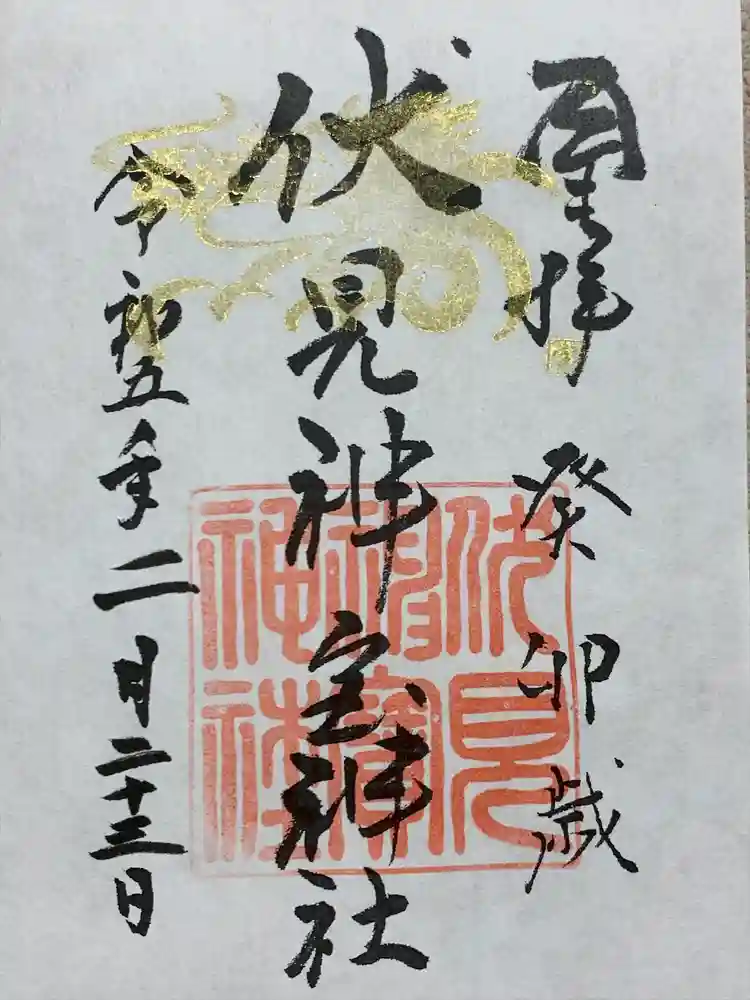 奉拝 癸卯歳
伏見神宝神社
令和五年二月二十三日
伏見
神寳
神社